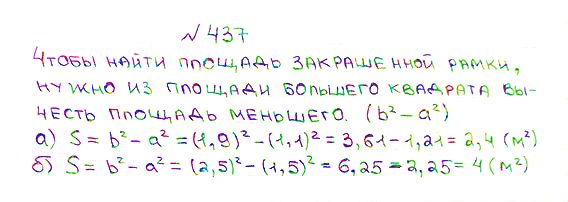 № 437
Чтобы найти площадь закрашенной рамки,
нужно из площади большего квадрата вы-
честь площадь меньшего. (b² - a²)
а) S = b² - a² = (1,9)² - (1,1)² = 3,61 - 1,21 = 2,4 (м²)
б) S = b² - a² = (2,5)² - (1,5)² = 6,25 - 2,25 = 4 (м²)